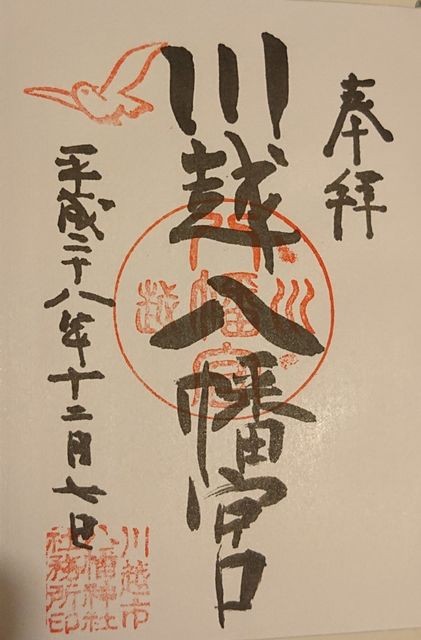 奉拝
川越八幡宮
川越
八幡宮
平成二十八年十二月七日
川越市
八幡神社
社務所印